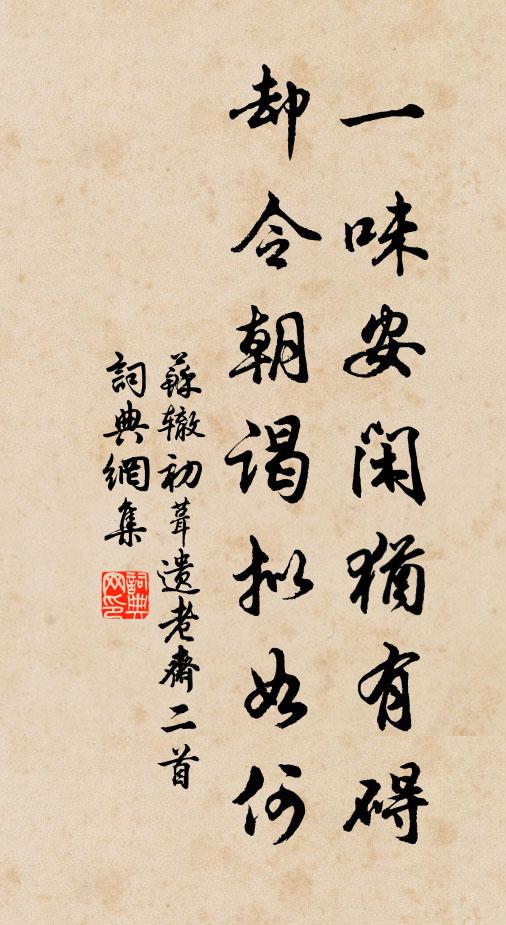 一味安闲猶有碍
却令朝谒拟如何
蘇辙初葺遗老齋二首
詞典網集
詞典网印